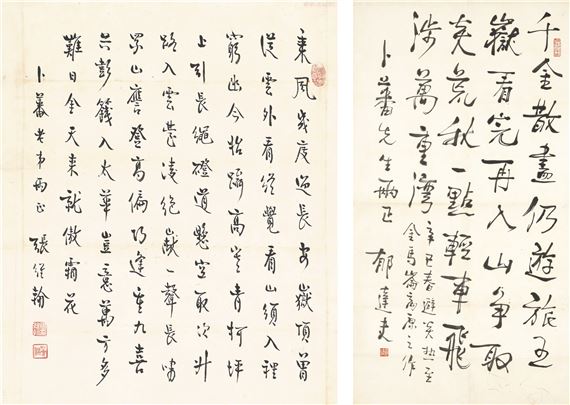 千金散盡仍遊旅五
嶽看完再入山爭取
炎荒秋一點輕車飛
涉萬重灣
辛巳春避炎熱至
金馬崙高原之作
卜蕃先生兩正
郁達夫
乘風幾度過長安嶽頂曾
從雲外看從覺看山須入裡
窮幽今始躡高青柯坪
上引長繩磴道懸空取次升
路入雲臺凌絕巘一聲長嘯
眾山譍登高偏巧逢重九喜
共彭籛入太華豈意萬方多
難日金天來就傲霜花
卜蕃老弟兩正
張維翰